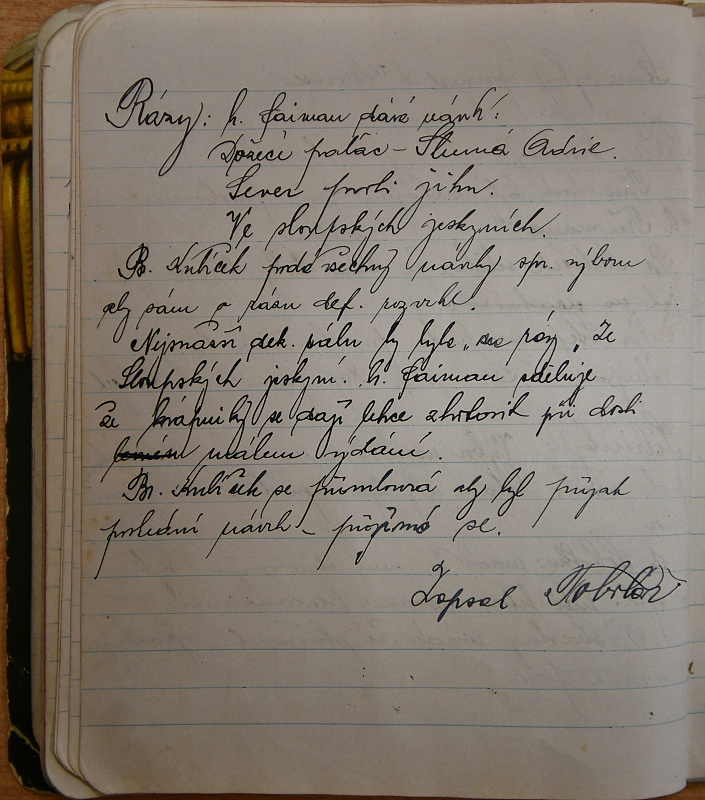 Rázy: b. Faiman dává návrh:
Dóžecí palác – Slunná Adrie.
Sever proti jihu.
Ve sloupských jeskyních.
Br. Kubíček podá všechny návrhy spr. výboru
aby sám o rázu def. rozvrhl.
Nejsnazší dek. sálu by bylo „na ráz„ Ze
Sloupských jeskyní. b. Faiman sděluje
že krápníky se dají lehce zhotovit při dosti
malém vydání.
Br. Kubíček se přimlouvá aby byl přijat
poslední návrh – přijímá se.
Zapsal